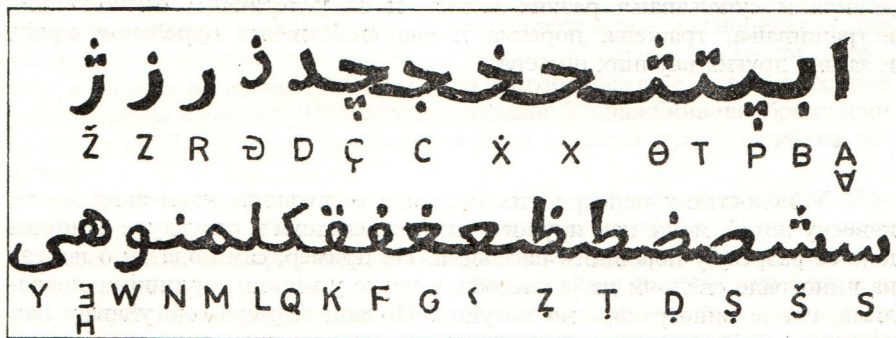 ابپتثحخجچد ذ ر ز ژ
Ž Z R Ɜ D Ç C Ẋ X Θ T P B A
∀
سشصضطظعغفقكلمنو هى
Y Ǝ W N M L Q K F G ʕ Ẓ Ṭ Ḍ Ṣ Š S
H